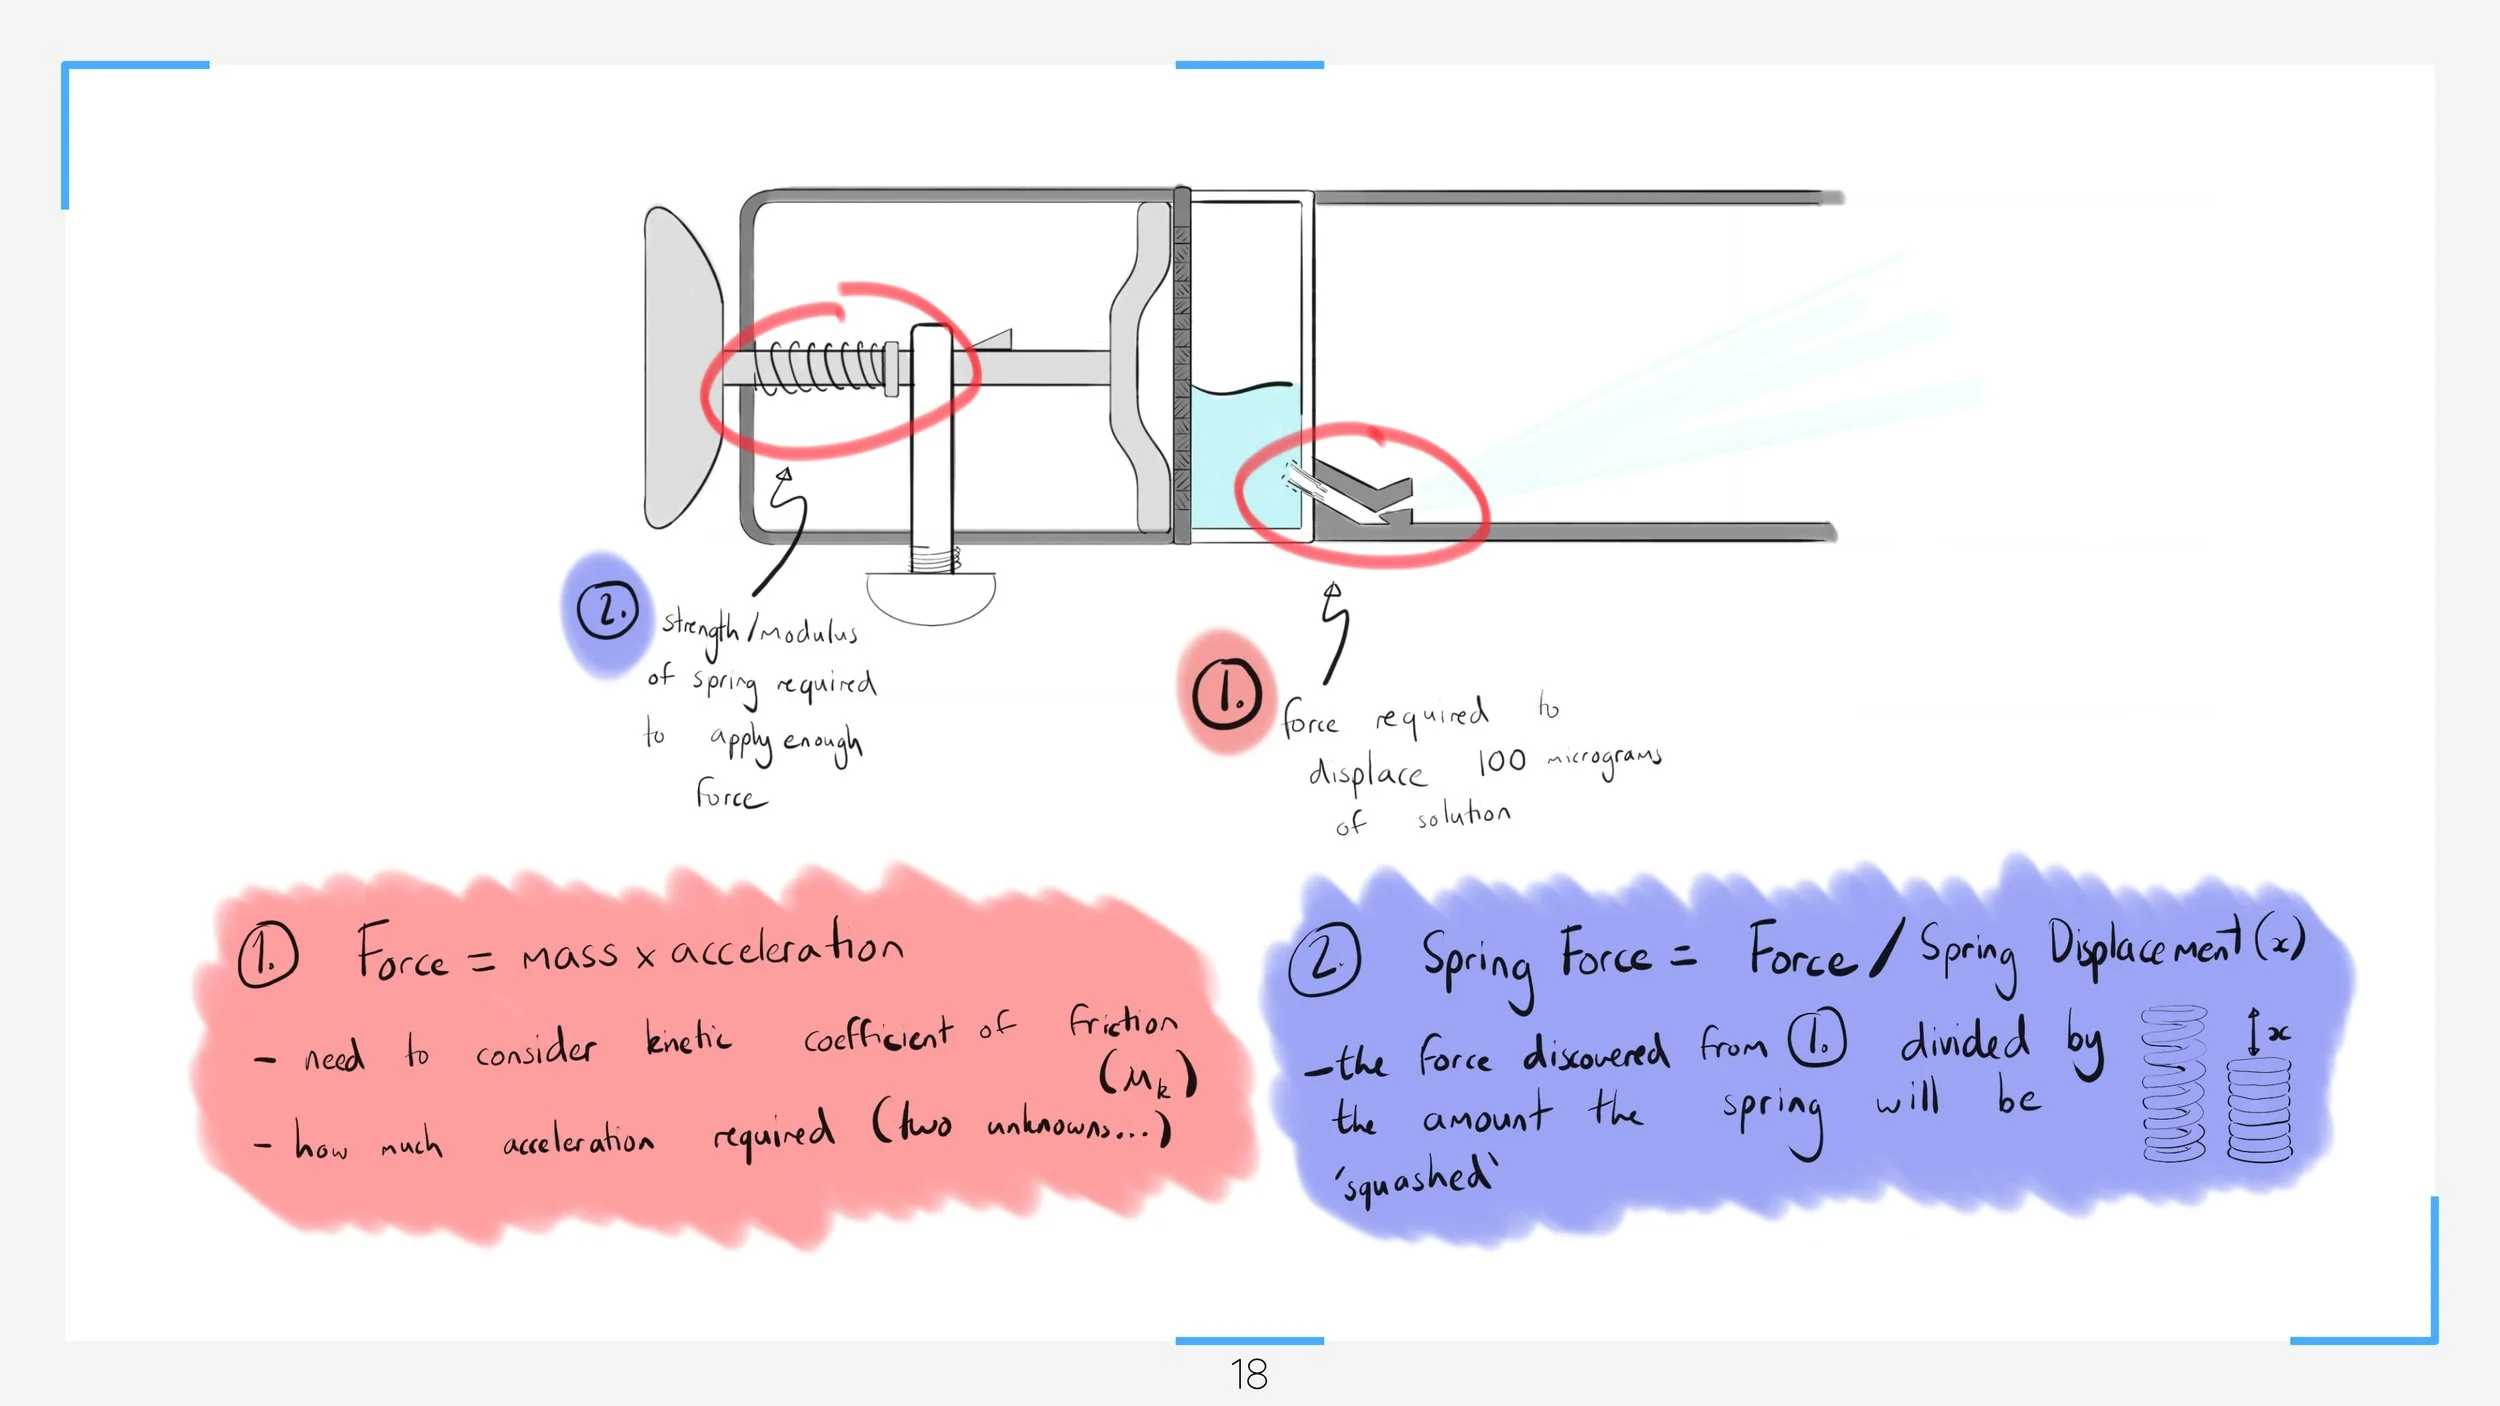 2.
strength/modulus
of spring required
to apply enough
force
1.
force required to
displace 100 micrograms
of solution
1. Force = mass x acceleration
- need to consider kinetic coefficient of friction
(μk)
- how much acceleration required (two unknowns...)
2. Spring Force = Force / Spring Displacement (x)
- the force discovered from 1. divided by
the amount the spring will be
'squashed'
x
18